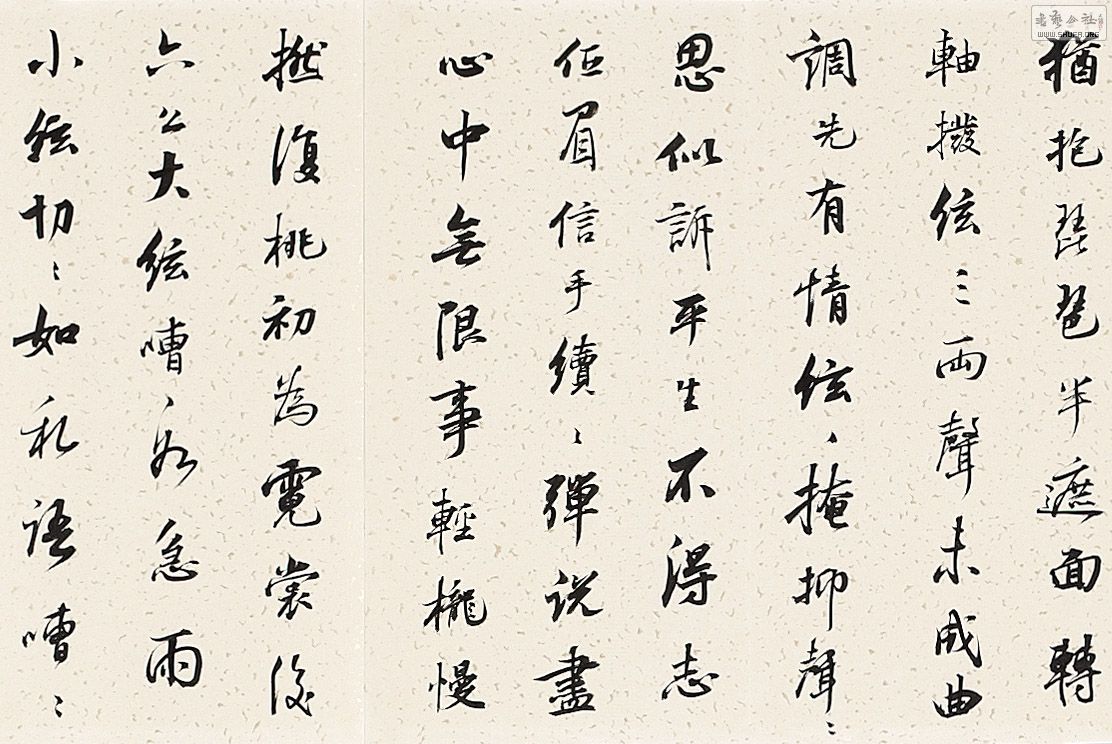 猶抱琵琶半遮面轉
軸撥絃三兩聲未成曲
調先有情絃〻掩抑聲〻
思似訴平生不得志
低眉信手續〻彈説盡
心中無限事輕櫳慢
撚復桃初為霓裳後
六么大絃嘈〻如急雨
小絃切〻如私語嘈〻
書藝公社
WWW.SHUFA.ORG